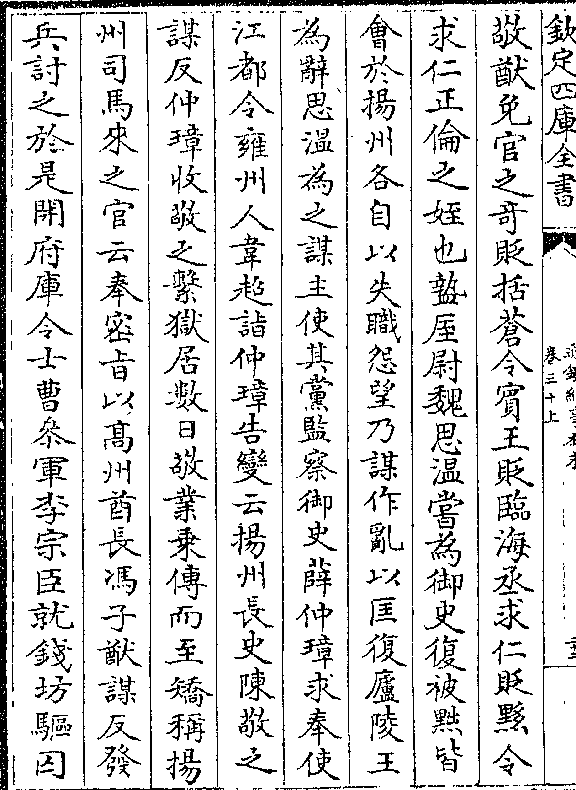 欽定四庫全書
卷三十上
敬猷免官之奇貶括蒼令賓王貶臨海丞求仁貶黟令
求仁正倫之姪也盩厔尉魏思溫嘗為御史復被黜皆
會於揚州各自以失職怨望乃謀作亂以匡復廬陵王
為辭思溫為之謀主使其黨監察御史薛仲璋求奉使
江都令雍州人韋超詣仲璋告變云揚州長史陳敬之
謀反仲璋收敬之繫獄居數日敬業乘傳而至矯稱揚
州司馬來之官云奉密旨以高州酋長馮子猷謀反發
兵討之於是開府庫令士曹叅軍李宗臣就錢坊驅囚